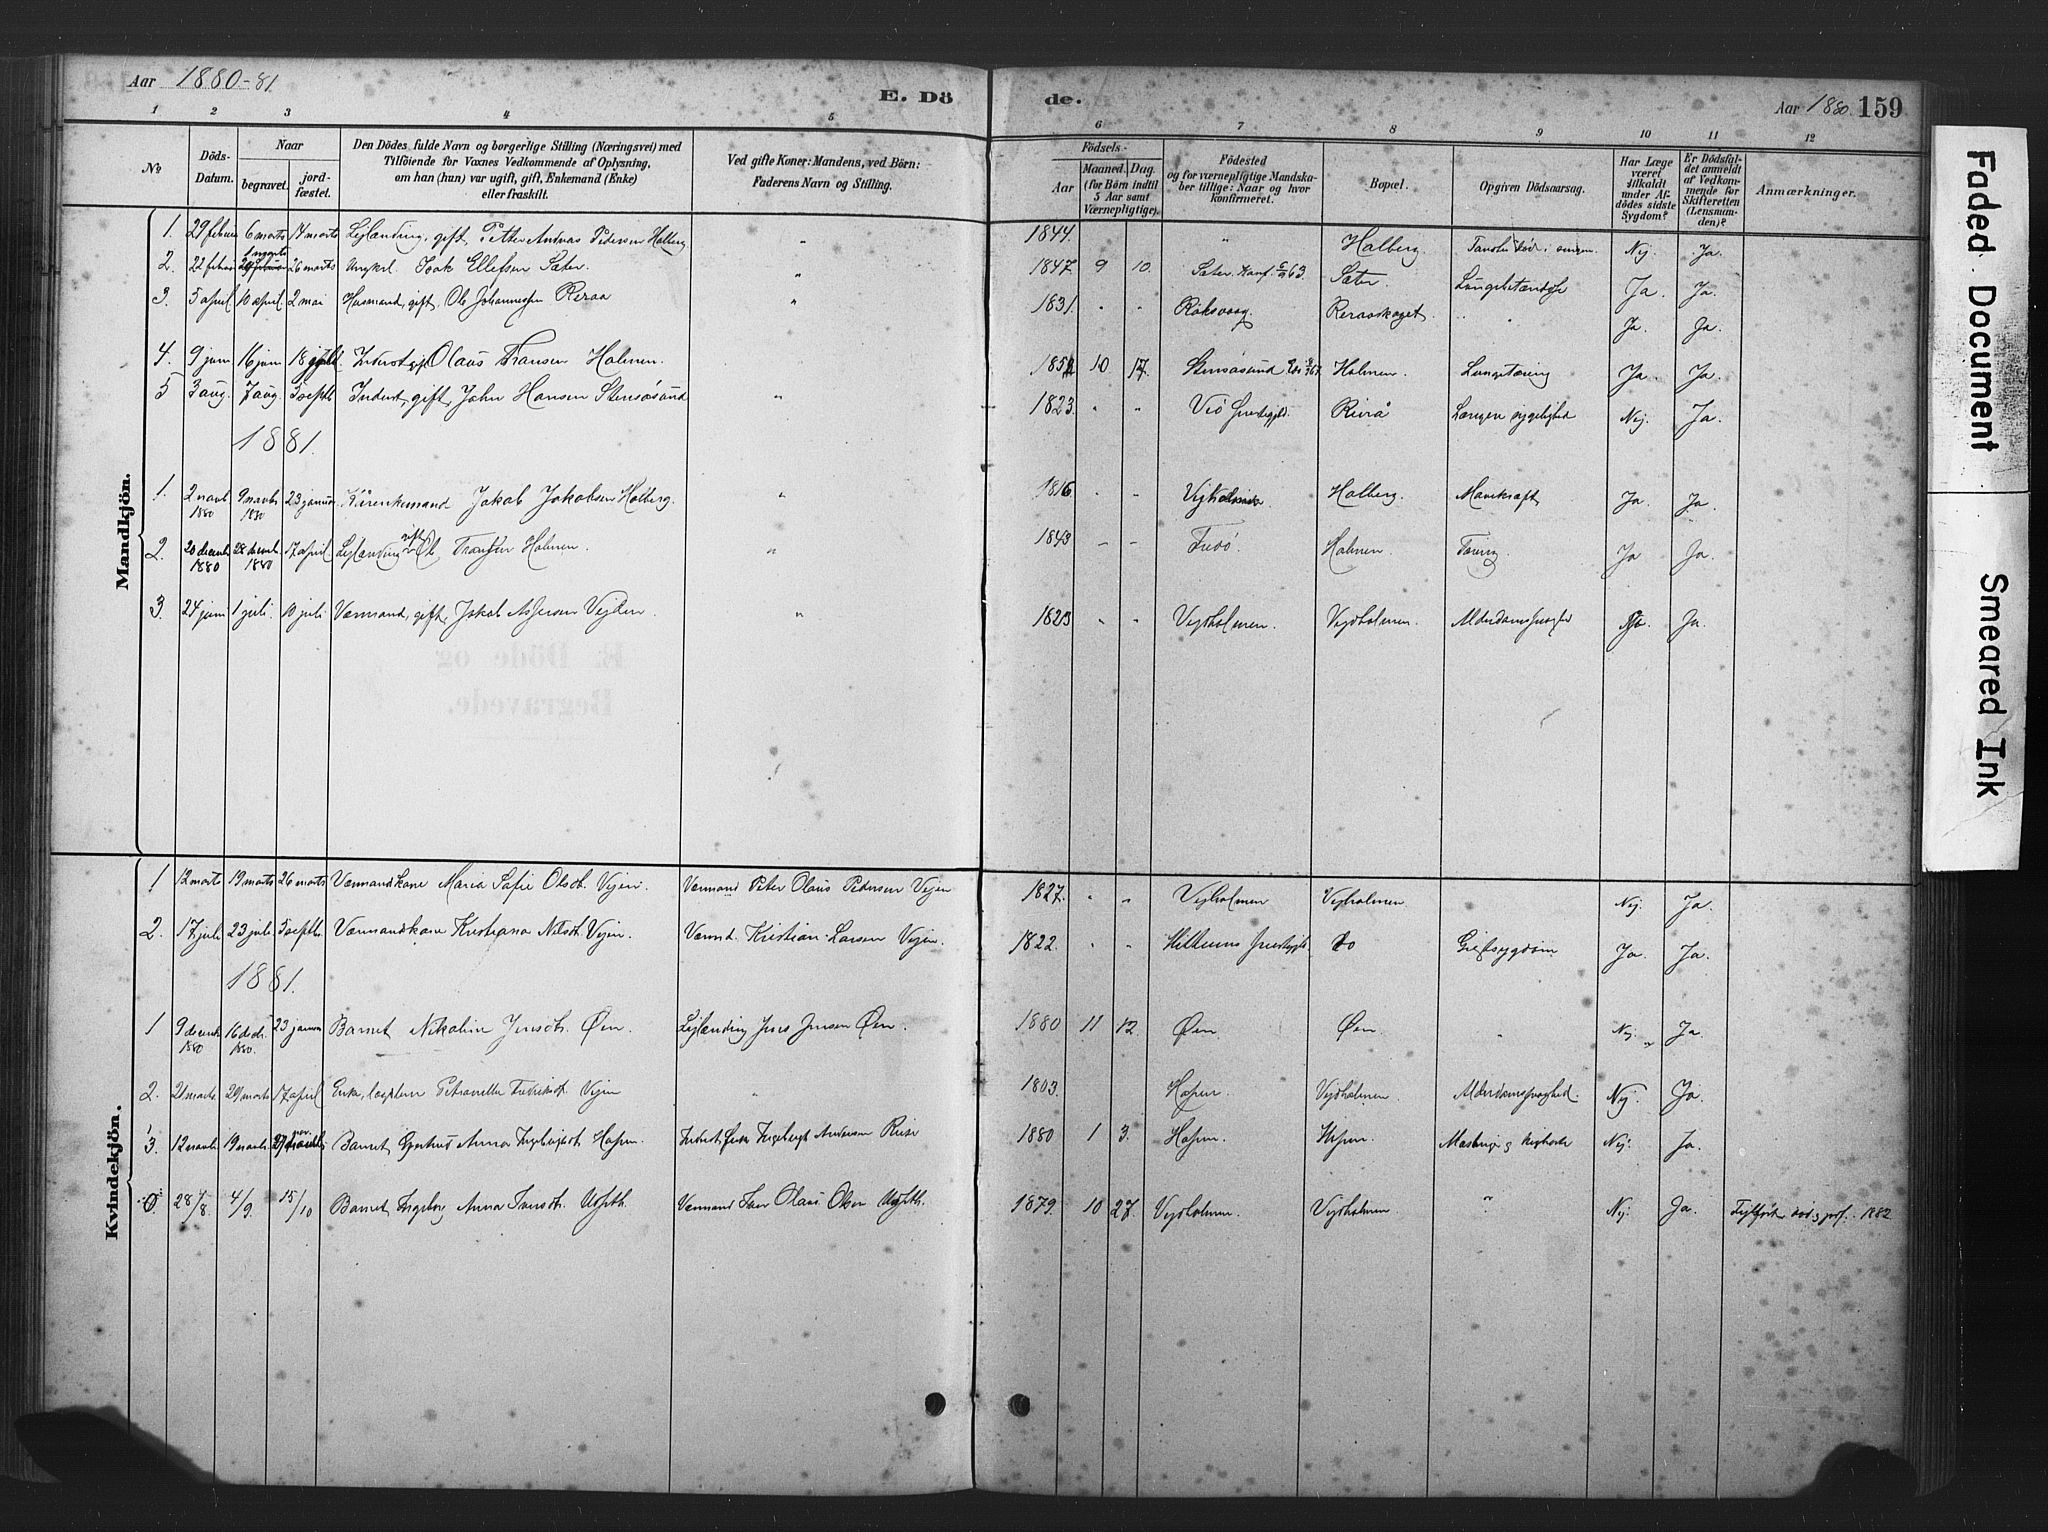 Aar 1880-81
E. Dö
de.
Aar 1880. 159
1 2 3 4 5 6 7 8 9 10 11 12
No
Döds-Datum.
Naar
begravet.
jord-fæstet.
Den Dödes fulde Navn og borgerlige Stilling (Næringsvei) med
Tilföiende for Voxnes Vedkommende af Oplysning,
om han (hun) var ugift, gift, Enkemand (Enke)
eller fraskilt.
Ved gifte Koner: Mandens, ved Börn:
Faderens Navn og Stilling.
Födsels-
Aar
Maaned. Dag.
(for Börn indtil
5 Aar samt
Værnepligtige).
Födested
og for værnepligtige Mandska-
ber tillige: Naar og hvor
konfirmeret.
Bopæl.
Opgiven Dödsaarsag.
Har Læge
været
tilkaldt
under Af-
dödes sidste
Sygdom?
Er Dödsfal-
det anmeldt
af Vedkom-
mende for
Skifteretten
(Lensman-
den)?
Anmærkninger.
Mandkjön.
1. 29 februar 6 marts 14 marts Leilænding, gift, Petter Andreas Pedersen Halberg " 1844. " Halberg Nej. Ja.
2. 22 februar 1 marts 26 marts Ungkrl. Isak Ellefsen Sæter. " 1847. 9 10. Sæter. Konf. 63 Sæter. Ja. Ja.
3. 5 april 10 april 2 mai Husmand, gift, Ole Johannessen Reraa " 1831. " " Röksvaag. Reraaskaget. " Ja. Ja.
4. 9 juni 16 juni 18 juli Inderst, gift Olaus Fransen Holmen. 10 17. Stensösund Holmen. Lungetæring Ja. Ja.
5 3 aug. 7 aug. 5 septb. Inderst, gift, John Hansen Stensösund " 1823. " " Veö Prestegjld. Rerå Længere sygelighed Nej. Ja.
1881.
1. 2 novb. 1880 9 novbr. 1880 23 januar Enkemand Jakob Jakobsen Halberg. " 1816. " " Vejholmen Halberg. Mavekræft Ja. Ja.
2. 20 decemb. 1880 28 decemb. 1880 17 april Leilænding gift Ole Fransen Holmen. " 1843 " " Fredö. Holmen. Tæring Ja Ja.
3. 24 juni 1 juli. 10 juli Værmand, gift, Jakob " 1823 " " Vejholmen. Vejholmen. Alderdomssvaghed Ja. Ja.
Kvindekjön.
1 12 marts 19 marts 26 marts Værmandskone Maria Sofie Olsdt. Vejen. Værmand Peter Olaus Pedersen Vejen 1827. " " Vejholmen Vejholmen. " Nej. Ja.
2. 17 juli 23 juli 5 septb. Værmandskone Kristiana Nilsdt. Vejen. Værmd. Kristian Larsen Vejen. 1822. " " Prestegjld. do Gigtsygdom Ja. Ja.
1881.
1 9 decemb. 1880 16 decbr. 1880. 23 januar Barnet Nikoline Jensdt. Øen. Leilænding Jens Jensen Øen. 1880 11 12. Øen Øen. " Nej. Ja.
2. 21 marts 29 marts 17 april Enke, Petranelle Fredriksdt. Vejen " 1803. Hopen. Vejholmen. Alderdomssvaghed. Nej. Ja.
3. 12 novb. 19 novb. 27 Barnet Anna Ingebrigtdt. Hopen. Inderst Ingebrigt Andersen 1880 1 3. Hopen. Hopen. Mæslinger og kighoste Nej. Ja.
0. 28/8. 4/9. 15/10 Barnet Ingeborg Anna Iversdt. Værmand Iver Olaus Olsen 1879. 10 27. Vejholmen. Vejholmen " Nej. Ja. 1882
Faded Document
Smeared Ink